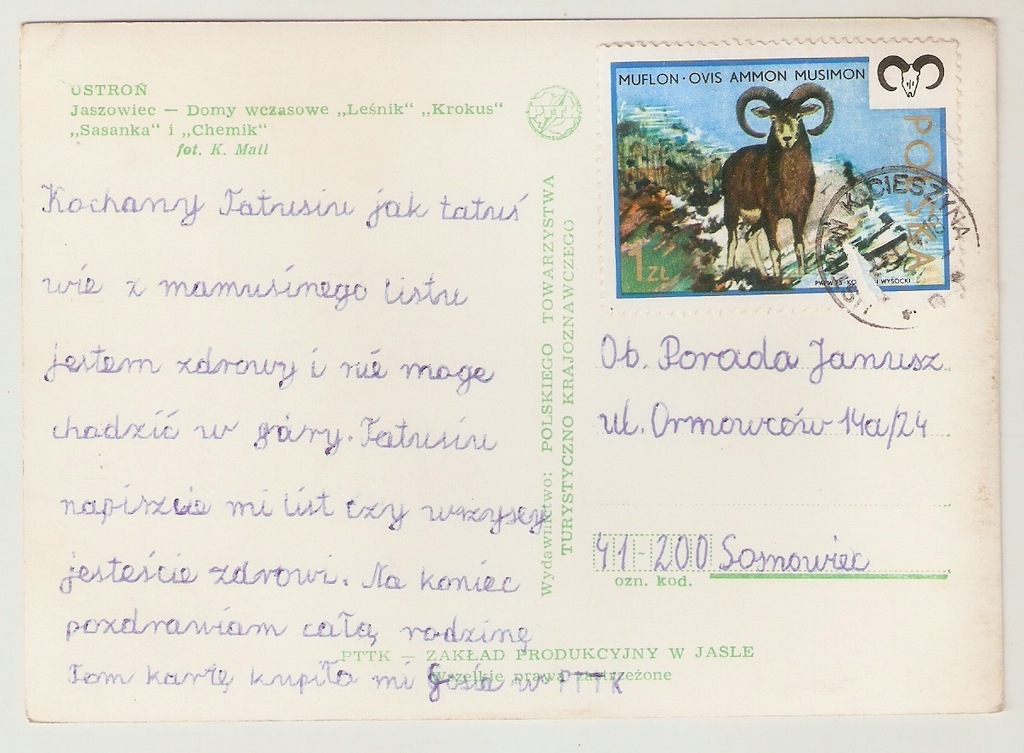 USTROŃ
Jaszowiec — Domy wczasowe „Leśnik" „Krokus"
„Sasanka" i „Chemik"
fot. K. Mall
PTTK
Kochany Tatusiu jak tatuś
wie z mamusinego listu
jestem zdrowy i nie moge
chadzić w góry. Tatusiu
napiszcie mi list czy wrzyscy
jesteście zdrowi. Na koniec
pozdrawiam całą rodzinę
Tom kartę kupiła mi Gosia w PTTK
Wydawnictwo: POLSKIEGO TOWARZYSTWA
TURYSTYCZNO KRAJOZNAWCZEGO
PTTK — ZAKŁAD PRODUKCYJNY W JAŚLE
Wszelkie prawa zastrzeżone
MUFLON · OVIS AMMON MUSIMON
POLSKA
1 ZŁ
WYSOCKI
K. CIESZYNA
Ob. Porada Janusz
ul. Ormowców 14a/24
41-200 Sosnowiec
ozn. kod.